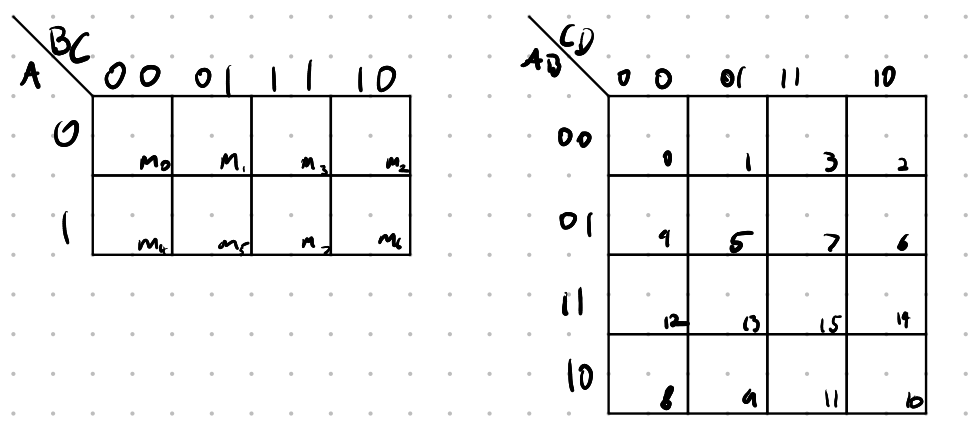 BC
A 00 01 11 10
0 m0 m1 m3 m2
1 m4 m5 m7 m6
CD
AB 00 01 11 10
00 0 1 3 2
01 4 5 7 6
11 12 13 15 14
10 8 9 11 10